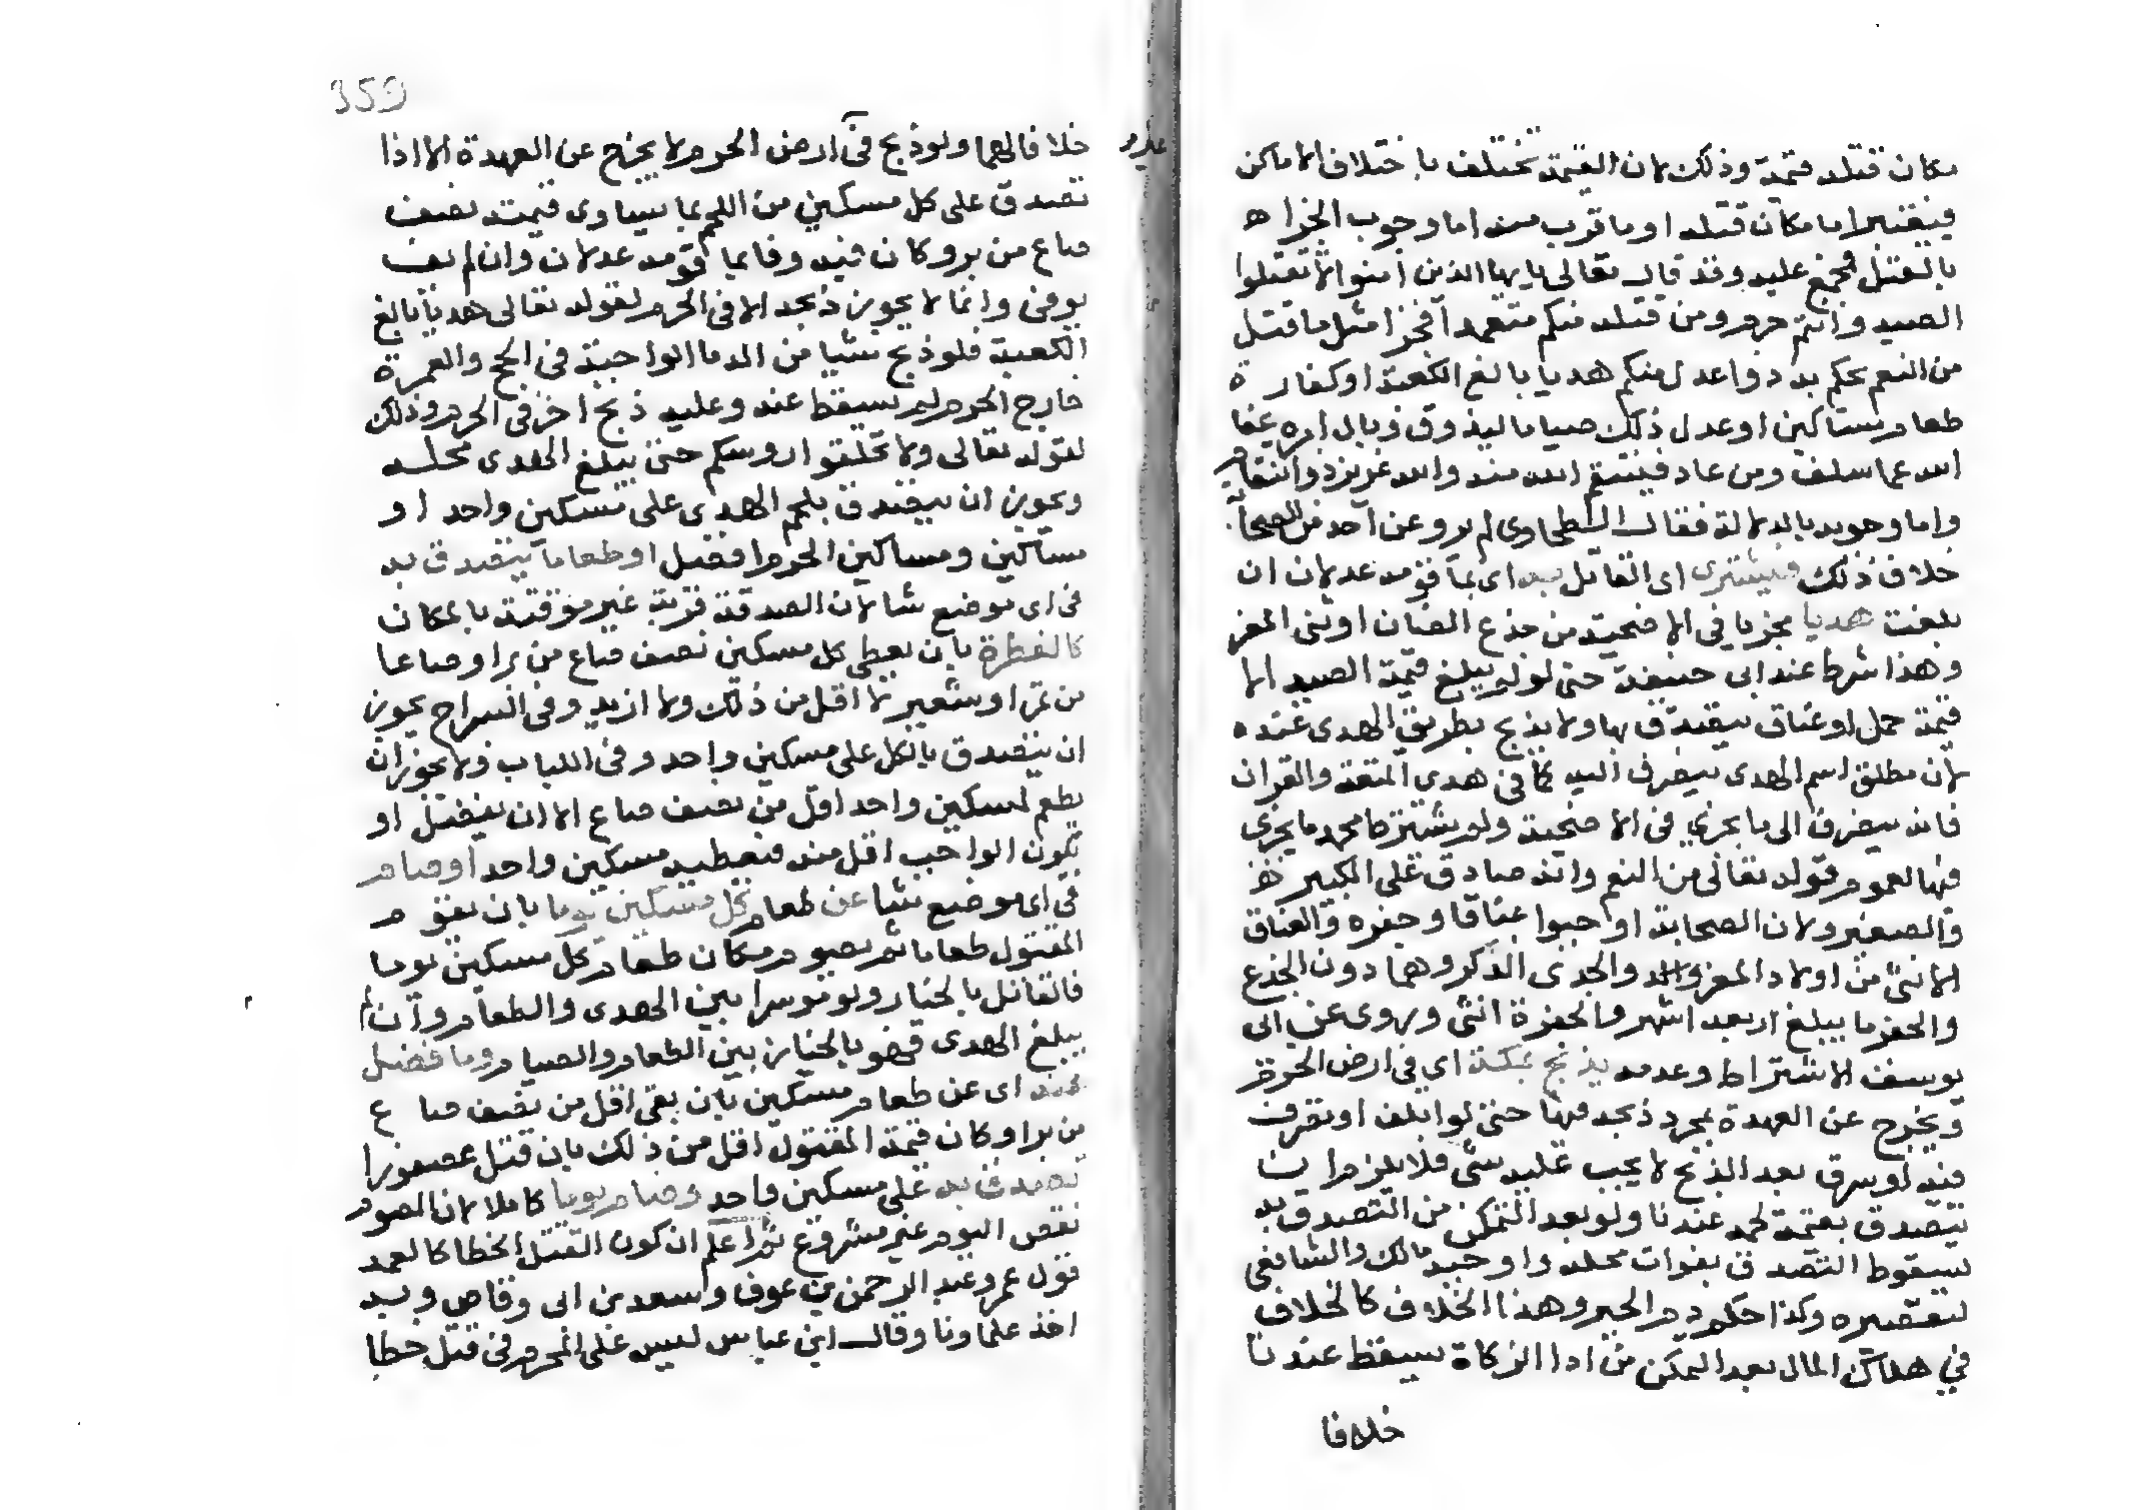 مكان قتله قيمة وذلك لان القيمة تختلف باختلاف الاماكن
فيعتبر اما مكان قتله او ما قرب منه اما وجوب الجزاء
بالقتل فمجمع عليه وقد قال تعالى يايها الذين امنوا لا تقتلوا
الصيد وانتم حرم ومن قتله منكم متعمدا فجزا مثل ما قتل
من النعم يحكم به ذوا عدل منكم هديا بالغ الكعبة او كفارة
طعام مساكين او عدل ذلك صياما ليذوق وبال امره عفا
الله عما سلف ومن عاد فينتقم الله منه والله عزيز ذو انتقام
واما وجوبه بالدلالة فقال الطحاوى لم يرو عن احد من الصحا
خلاف ذلك فيشترى اى القاتل به اى بما قومه عدلان ان
بلغت هديا يجزيا فى الاضحية من جذع الضان او ثنى المعز
وهذا شرط عند ابى حنيفة حتى لو لم يبلغ قيمة الصيد الا
قيمة حمل او عناق يتصدق بها ولا يذبح بطريق الهدى عنده
لان مطلق اسم الهدى ينصرف اليه كما فى هدى المتعة والقران
فانه ينصرف الى ما يجزي فى الاضحية ولم يشترط محمد ما يجزى
فيها لعموم قوله تعالى من النعم وانه صادق على الكبير
والصغير ولان الصحابة اوجبوا عناقا وجفرة والعناق
الانثى من اولاد المعز والجدى الذكر وهما دون الجذع
والجفر ما يبلغ اربعة اشهر والجفرة انثى وروى عن ابى
يوسف الاشتراط وعدمه يذبح بمكة اي فى ارض الحرم
ويخرج عن العهدة بمجرد ذبحه فيها حتى لو اتلف او تصرف
فيه او سرق بعد الذبح لا يجب عليه شى فلا يلزم ان
يتصدق بقيمة لحمه عندنا ولو بعد التمكن من التصدق به
لسقوط التصدق بفوات محله واوجبه مالك والشافعى
لتقصيره وكذا حكم دم الجبر وهذا الخلاف كالخلاف
في هلاك المال بعد التمكن من ادا الزكاة يسقط عندنا
خلافا
359
خلافا لهما ولو ذبح فى ارض الحرم لا يخرج عن العهدة الا اذا
تصدق على كل مسكين من اللحم بما يساوى قيمته نصف
صاع من بر وكان فيه وفا بما قومه عدلان وان لم يف
يوفى وانما لا يجوز ذبحه الا فى الحرم لقوله تعالى هديا بالغ
الكعبة فلو ذبح شيا من الدما الواجبة فى الحج والعمرة
خارج الحرم لم يسقط عنه وعليه ذبح اخر فى الحرم وذلك
لقوله تعالى ولا تحلقوا روسكم حتى يبلغ الهدى محله
ويجوز ان يتصدق بلحم الهدى على مسكين واحد او
مساكين ومساكين الحرم افضل او طعاما يتصدق به
فى اى موضع شا لان الصدقة قربة غير موقتة بالمكان
كالفطرة بان يعطى كل مسكين نصف صاع من بر او صاعا
من تمر او شعير لا اقل من ذلك ولا ازيد وفى السراج يجوز
ان يتصدق بالكل على مسكين واحد وفى اللباب ولا يجوز ان
يطعم لمسكين واحد اقل من نصف صاع الا ان يفضل او
يكون الواجب اقل منه فيعطيه مسكين واحد او صام
فى اى موضع شا عن طعام كل مسكين يوما بان يقوم
المقتول طعاما ثم يصوم مكان طعام كل مسكين يوما
فالقاتل بالخيار ولو موسرا بين الهدى والطعام وان لم
يبلغ الهدى فهو بالخيار بين الطعام والصيام وما فضل
عنه اى عن طعام مسكين بان بقى اقل من نصف صاع
من بر او كان قيمة المقتول اقل من ذلك بان قتل عصفورا
تصدق به على مسكين واحد وصام يوما كاملا لان الصوم
نقص اليوم غير مشروع ثم اعلم ان كون القتل الخطا كالعمد
قول عمر وعبد الرحمن بن عوف وسعد بن ابى وقاص وبه
اخذ علماونا وقال ابن عباس ليس على المحرم فى قتل خطا